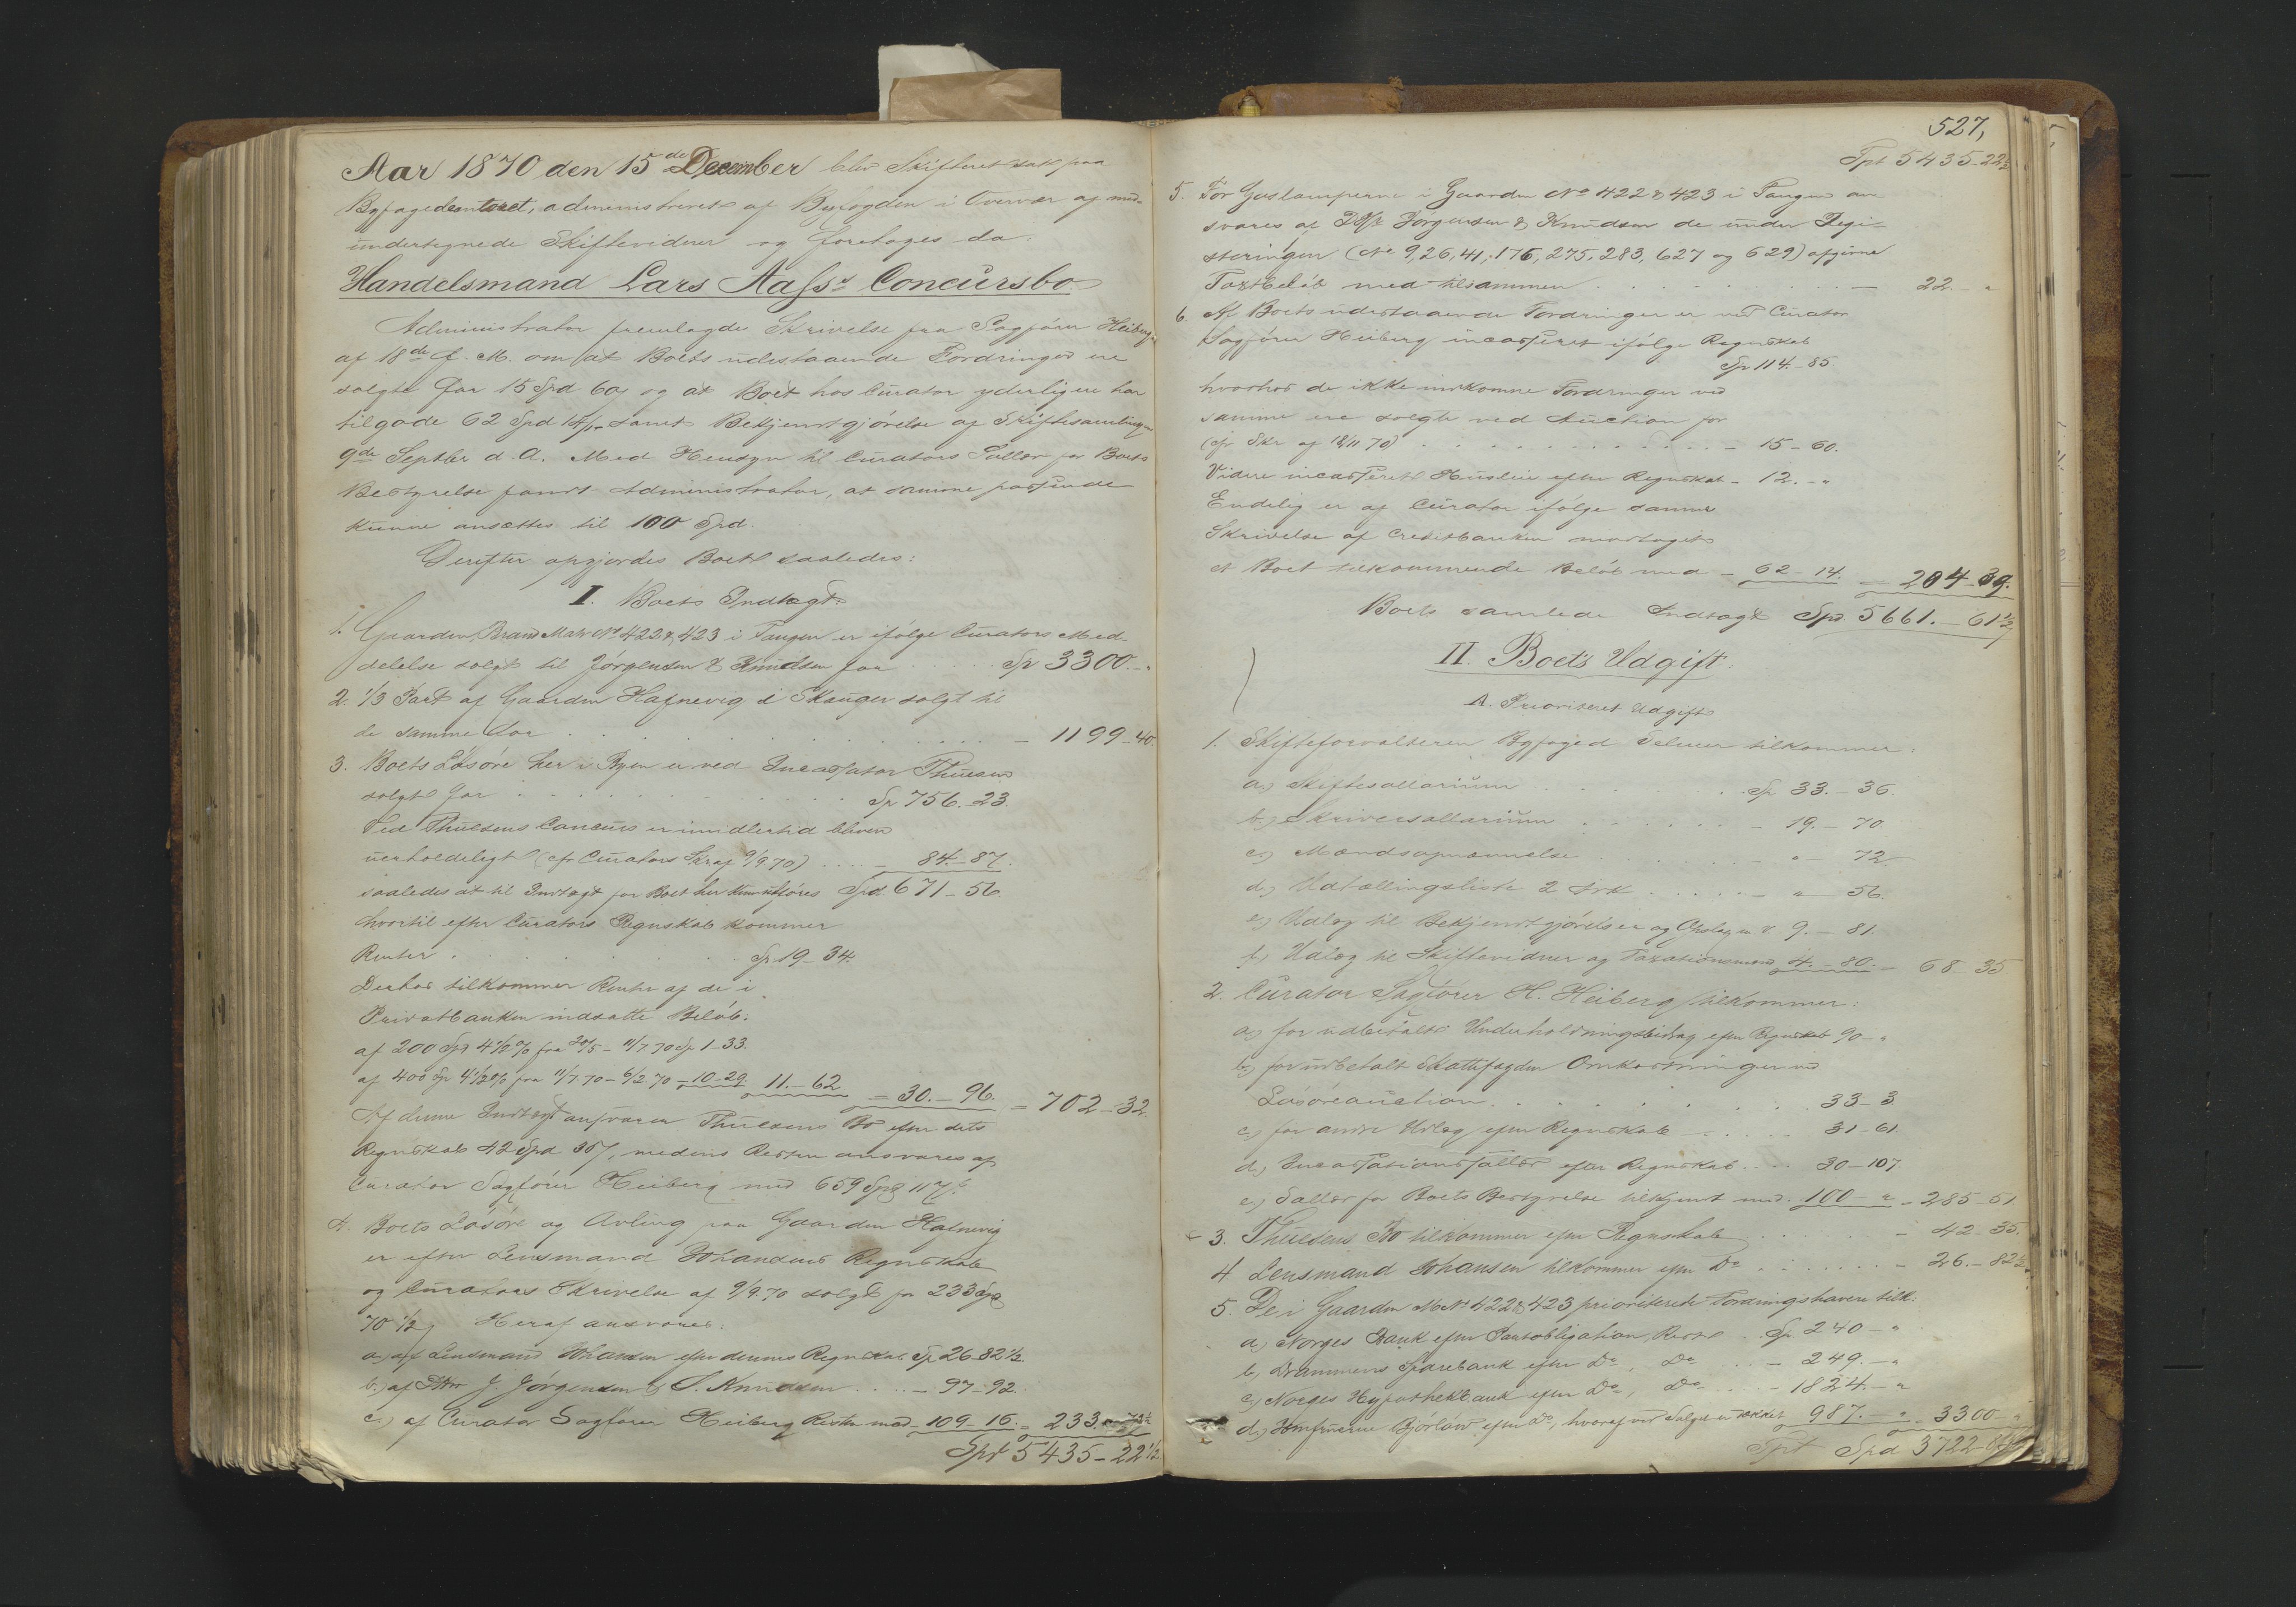 Aar 1870 den 15de December blev Skifteret sat paa
Byfogedcontoret, administreret af Byfogden i Overvær af med-
undertegnede Skiftevidner og foretoges da:
Handelsmand Lars Aass's Concursbo
Administrator fremlagde Skrivelse fra Sagfører Heiberg
af 18de f. M. om at Boets udestaaende Fordringer ere
solgte for 15 Spd 60 og at Boet hos Curator yderligere har
tilgode 62 Spd 14 samt Bekjendtgjørelse af Skiftesamling
9de Septbr d. A. Med Hensyn til Curators Sallær for Boets
Bestyrelse fandt Administrator, at samme passende
kunne ansættes til 100 Spd.
Derefter opgjordes Boet saaledes:
I. Boets Indtægt:
1. Gaarden Brand Matr No 422 & 423 i Tangen er ifølge Curators Med-
delelse solgt til Jørgensen & Knudsen for Sp 3300. - "
2. 1/3 Part af Gaarden Hafnevig i Skauger solgt til
de samme for - 1199 - 40.
3. Boets Løsøre her i Byen er ved Incassator Thuesen
solgt for Sp 756. - 23.
Ved Thuesens Concurs er imidlertid bleven
uerholdeligt (cfr Curators Skr af 9/9 70) - 84. - 87.
saaledes at til Indtægt for Boet her kun udføres Spd 671 - 56.
hvortil efter Curators Regnskab kommer
Renter Sp 19 - 34.
Derhos tilkommer Renter af de i
Privatbanken indsatte Beløb:
af 200 Spd 4 1/2 % fra 20/5 - 11/7 70 Sp 1 - 33.
af 400 Sp 4 1/2 % fra 11/7 70 - 6/2 70 - 10 - 29 11. - 62 = 30. - 96. = 702 - 32.
Af denne Indtægt ansvarer Thuesens Bo efter dets
Regnskab 42 Spd 35, medens Resten ansvares af
Curator Sagfører Heiberg med 659 Spd 117.
4. Boets Løsøre og Avling paa Gaarden Hafnevig
er efter Lensmand Johansens Regnskab
og Curators Skrivelse af 9/9 70 solgt for 233 Spd
70 1/2 Heraf ansvares:
a) af Lensmand Johansen efter dennes Regnskab Sp 26 - 82 1/2.
b) af J. Jørgensen & S. Knudsen - 97 - 92.
c) af Curator Sagfører Heiberg Resten med - 109 - 16. = 233. - 70 1/2
Spd 5435 - 22 1/2
527,
Spd 5435 - 22 1/2
5. For Gaslamperne i Gaarden No 422 & 423 i Tangen an-
svares af Jørgensen & Knudsen de under Regi-
streringen (No 9, 26, 41, 176, 275, 283, 627 og 629) opgivne
Taxtbeløb med tilsammen - 22. - "
6. Af Boets udestaaende Fordringer er ved Curator
Sagfører Heiberg incasseret ifølge Regnskab
Sp 114. - 85
hvorhos de ikke indkomne Fordringer ved
samme ere solgte ved Auction for
(cfr Skr af 18/11 70) - 15 - 60.
Videre incasseret Husleie efter Regnskab - 12. - "
Endelig er af Curator ifølge samme
Skrivelse af Creditbanken modtaget
et Boet tilkommende Beløb med - 62 - 14. = 204 - 39.
Boets samlede Indtægt Spd 5661. - 61 1/2
II. Boets Udgift.
A. Prioriteret Udgift
1. Skifteforvalteren Byfoged tilkommer:
a) Skiftesallarium Sp 33. - 36.
b) Skriversallarium - 19. - 70
c) Mændsopnævnelse - " - 72
d) Udtællingsliste 2 Ark - " - 56.
e) Udlæg til Bekjendtgjørelser og Opslag m v 9. - 81.
f) Udlæg til Skiftevidner og Taxationsmænd 4. - 80. - 68 - 35
2. Curator Sagfører H. Heiberg tilkommer:
a) for udbetalt Underholdningsbidrag efter Regnskab 90 - "
b) for udbetalt Skattefogden Omkostninger ved
Løsøreauction 33 - 3
c) for andre Udlæg efter Regnskab 31 - 61.
d) Incassationssallær efter Regnskab 30 - 107.
e) Sallær for Boets Bestyrelse tilkjendt med 100 - " - 285 - 51
3. Thuesens Bo tilkommer efter Regnskab - 42 - 35.
4 Lensmand Johansen tilkommer efter Do - 26. - 82 1/2
5. De i Gaarden M No 422 & 423 prioriterede Fordringshavere tilk:
a) Norges Bank efter Pantobligation, Rest Sp 240 - "
b) Drammens Sparebank efter Do, Do - 249. - "
c) Norges Hypothekbank efter Do, Do - 1824. - "
d) Jomfruerne efter Do, hvoraf ved Salget er dækket 987. - " - 3300 - "
Spd 3722